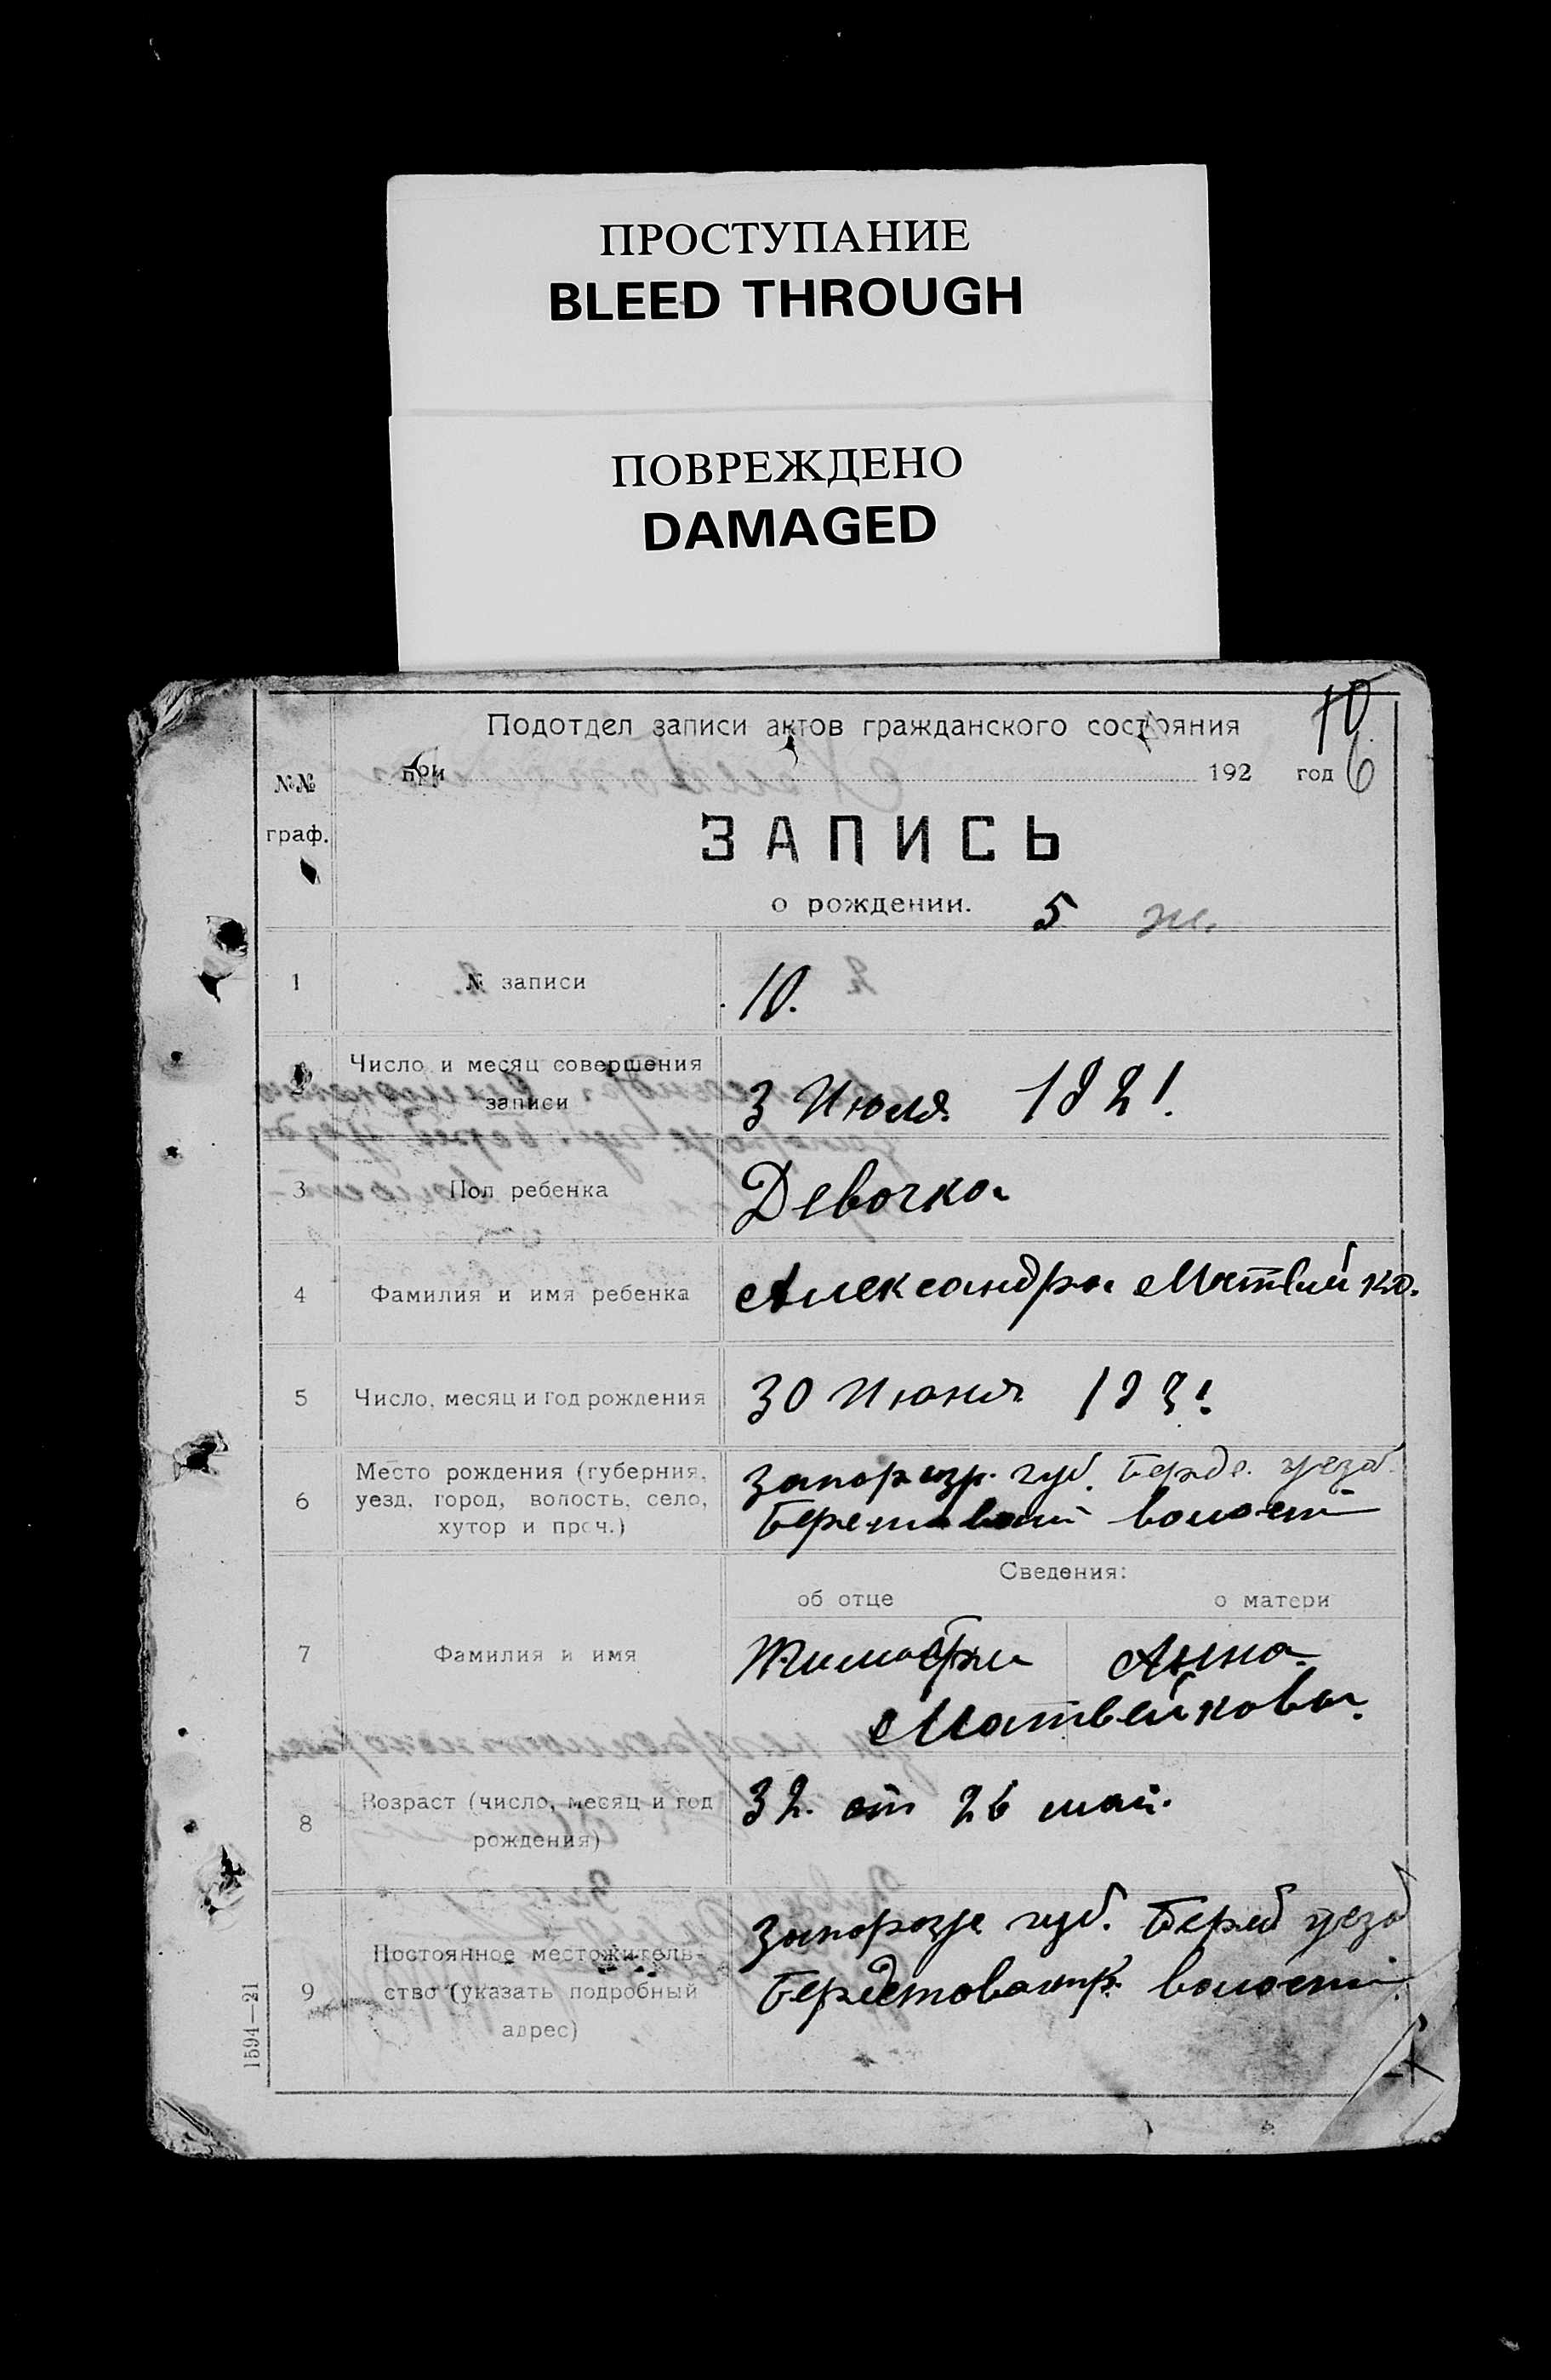 ПРОСТУПАНИЕ
BLEED THROUGH
ПОВРЕЖДЕНО
DAMAGED
10
Подотдел записи актов гражданского состояния
при 192 год
6
№№
граф.
ЗАПИСЬ
о рождении. 5 ж.
1 № записи 10.
2 Число и месяц совершения
записи 3 Июля 1921.
3 Пол ребенка Девочка
4 Фамилия и имя ребенка Александра Матвийко.
5 Число, месяц и год рождения 30 Июня 192!
6 Место рождения (губерния,
уезд, город, волость, село,
хутор и проч.)
губ. Бердя. уезд.
волости
Сведения:
об отце о матери
7 Фамилия и имя Анна
Матвейкова.
8 Возраст (число, месяц и год
рождения)
32. от 26 май.
9 Постоянное местожитель-
ство (указать подробный
адрес)
губ. уезд
волости
1594—21